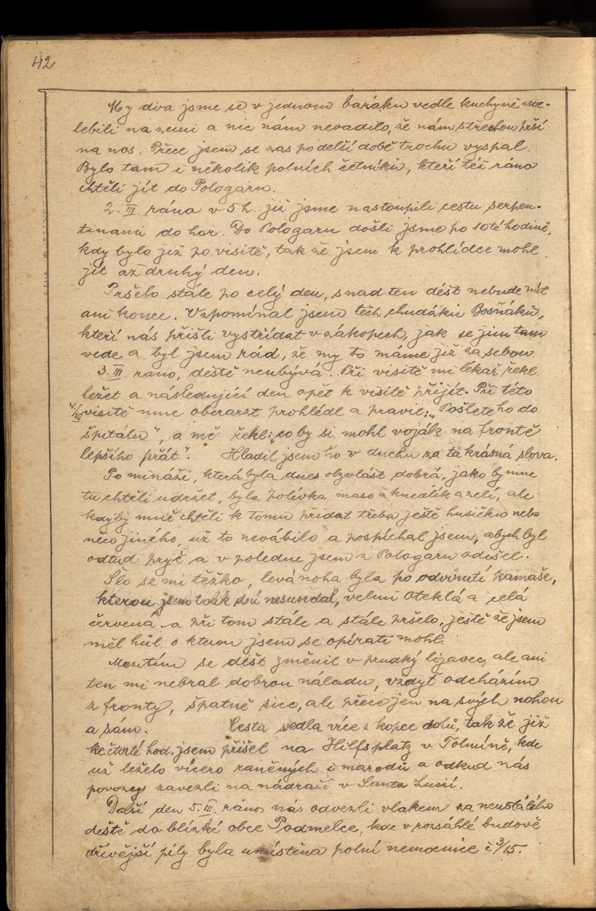 42
My dva jsme se v jednom baráku vedle kuchyně uve-
lebili na zemi a nic nám nevadilo, že nám střechou prší
na nos. Přece jsem se zas po delší době trochu vyspal.
Bylo tam i několik polních četníků, kteří též ráno
chtěli jít do Pologaru.
2. III. ráno v 5 h. již jsme nastoupili cestu serpen-
tinami do hor. Do Pologaru došli jsme po 10té hodině,
kdy bylo již po visitě, tak že jsem k prohlídce mohl
jít až druhý den.
Pršelo stále po celý den, snad ten déšť nebude mít
ani konce. Vzpomínal jsem těch chudáků Bosňáků,
kteří nás přišli vystřídat v zákopech, jak se jim tam
vede a byl jsem rád, že my to máme již za sebou.
3. III. ráno, deště neubývá. Při visitě mi lékař řekl
ležet a následující den opět k visitě přijít. Při této
4/III visitě mne oberarzt prohlédl a pravil: „Pošlete ho do
špitálu", a mě řekl: „co by si mohl voják na frontě
lepšího přát". Hladil jsem ho v duchu za ta krásná slova.
Po mináži, která byla dnes obzvlášt dobrá, jako by mne
tu chtěli udržet, byla polévka maso a knedlík a zelí, ale
kdyby mně chtěli k tomu přidat třeba ještě husičku nebo
něco jiného, už to nevábilo a pospíchal jsem, abych byl
odtud pryč a v poledne jsem z Pologaru odišel.
Šlo se mi těžko, levá noha byla po odvinutí kamaše,
kterou jsem tolik dní nesundal, velmi oteklá a celá
červená a při tom stále a stále pršelo, ještě že jsem
měl hůl o kterou jsem se opírati mohl.
Mezitím se déšť změnil v prudký lijavec, ale ani
ten mi nebral dobrou náladu, vždyť odcházím
z fronty, špatně sice, ale přece jen na svých nohou
a sám. Cesta vedla více s kopce dolů, tak že již
ke čtvrté hod. jsem přišel na Hilfsplatz v Tolmíně, kde
už leželo vícero raněných i marodů a odkud nás
povozy zavezli na nádraží v Santa Lucii.
Další den 5. III. ráno nás odvezli vlakem za neustálého
deště do blízké obce Podmelce, kde v rozsáhlé budově
dřívější pily byla umístěna polní nemocnice č 3/15.